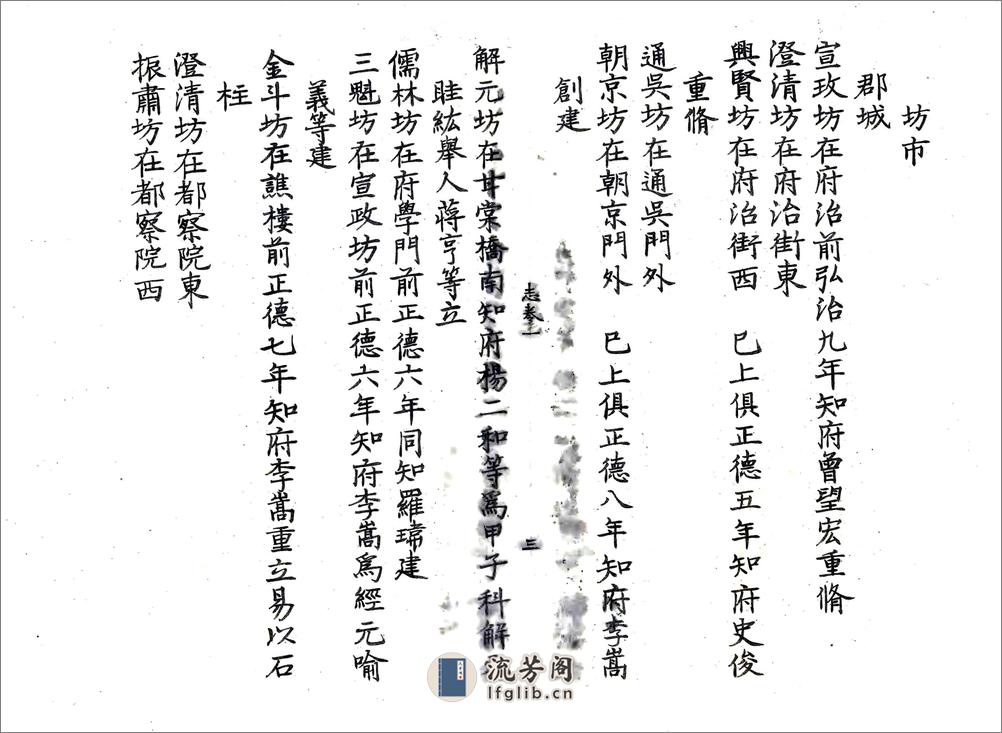 坊市
郡城
宣政坊在府治前弘治九年知府曾望宏重脩
澄清坊在府治街東
興賢坊在府治街西　巳上俱正德五年知府史俊
重脩
通吳坊在通吳門外
朝京坊在朝京門外　巳上俱正德八年知府李嵩
創建
志卷一
三
解元坊在甘棠橋南知府楊二和等爲甲子科解
眭紘舉人蔣亨等立
儒林坊在府學門前正德六年同知羅瑋建
三魁坊在宣政坊前正德六年知府李嵩爲經元喻
義等建
金斗坊在譙樓前正德七年知府李嵩重立易以石
柱
澄清坊在都察院東
振肅坊在都察院西
流芳阁
lfglib.cn